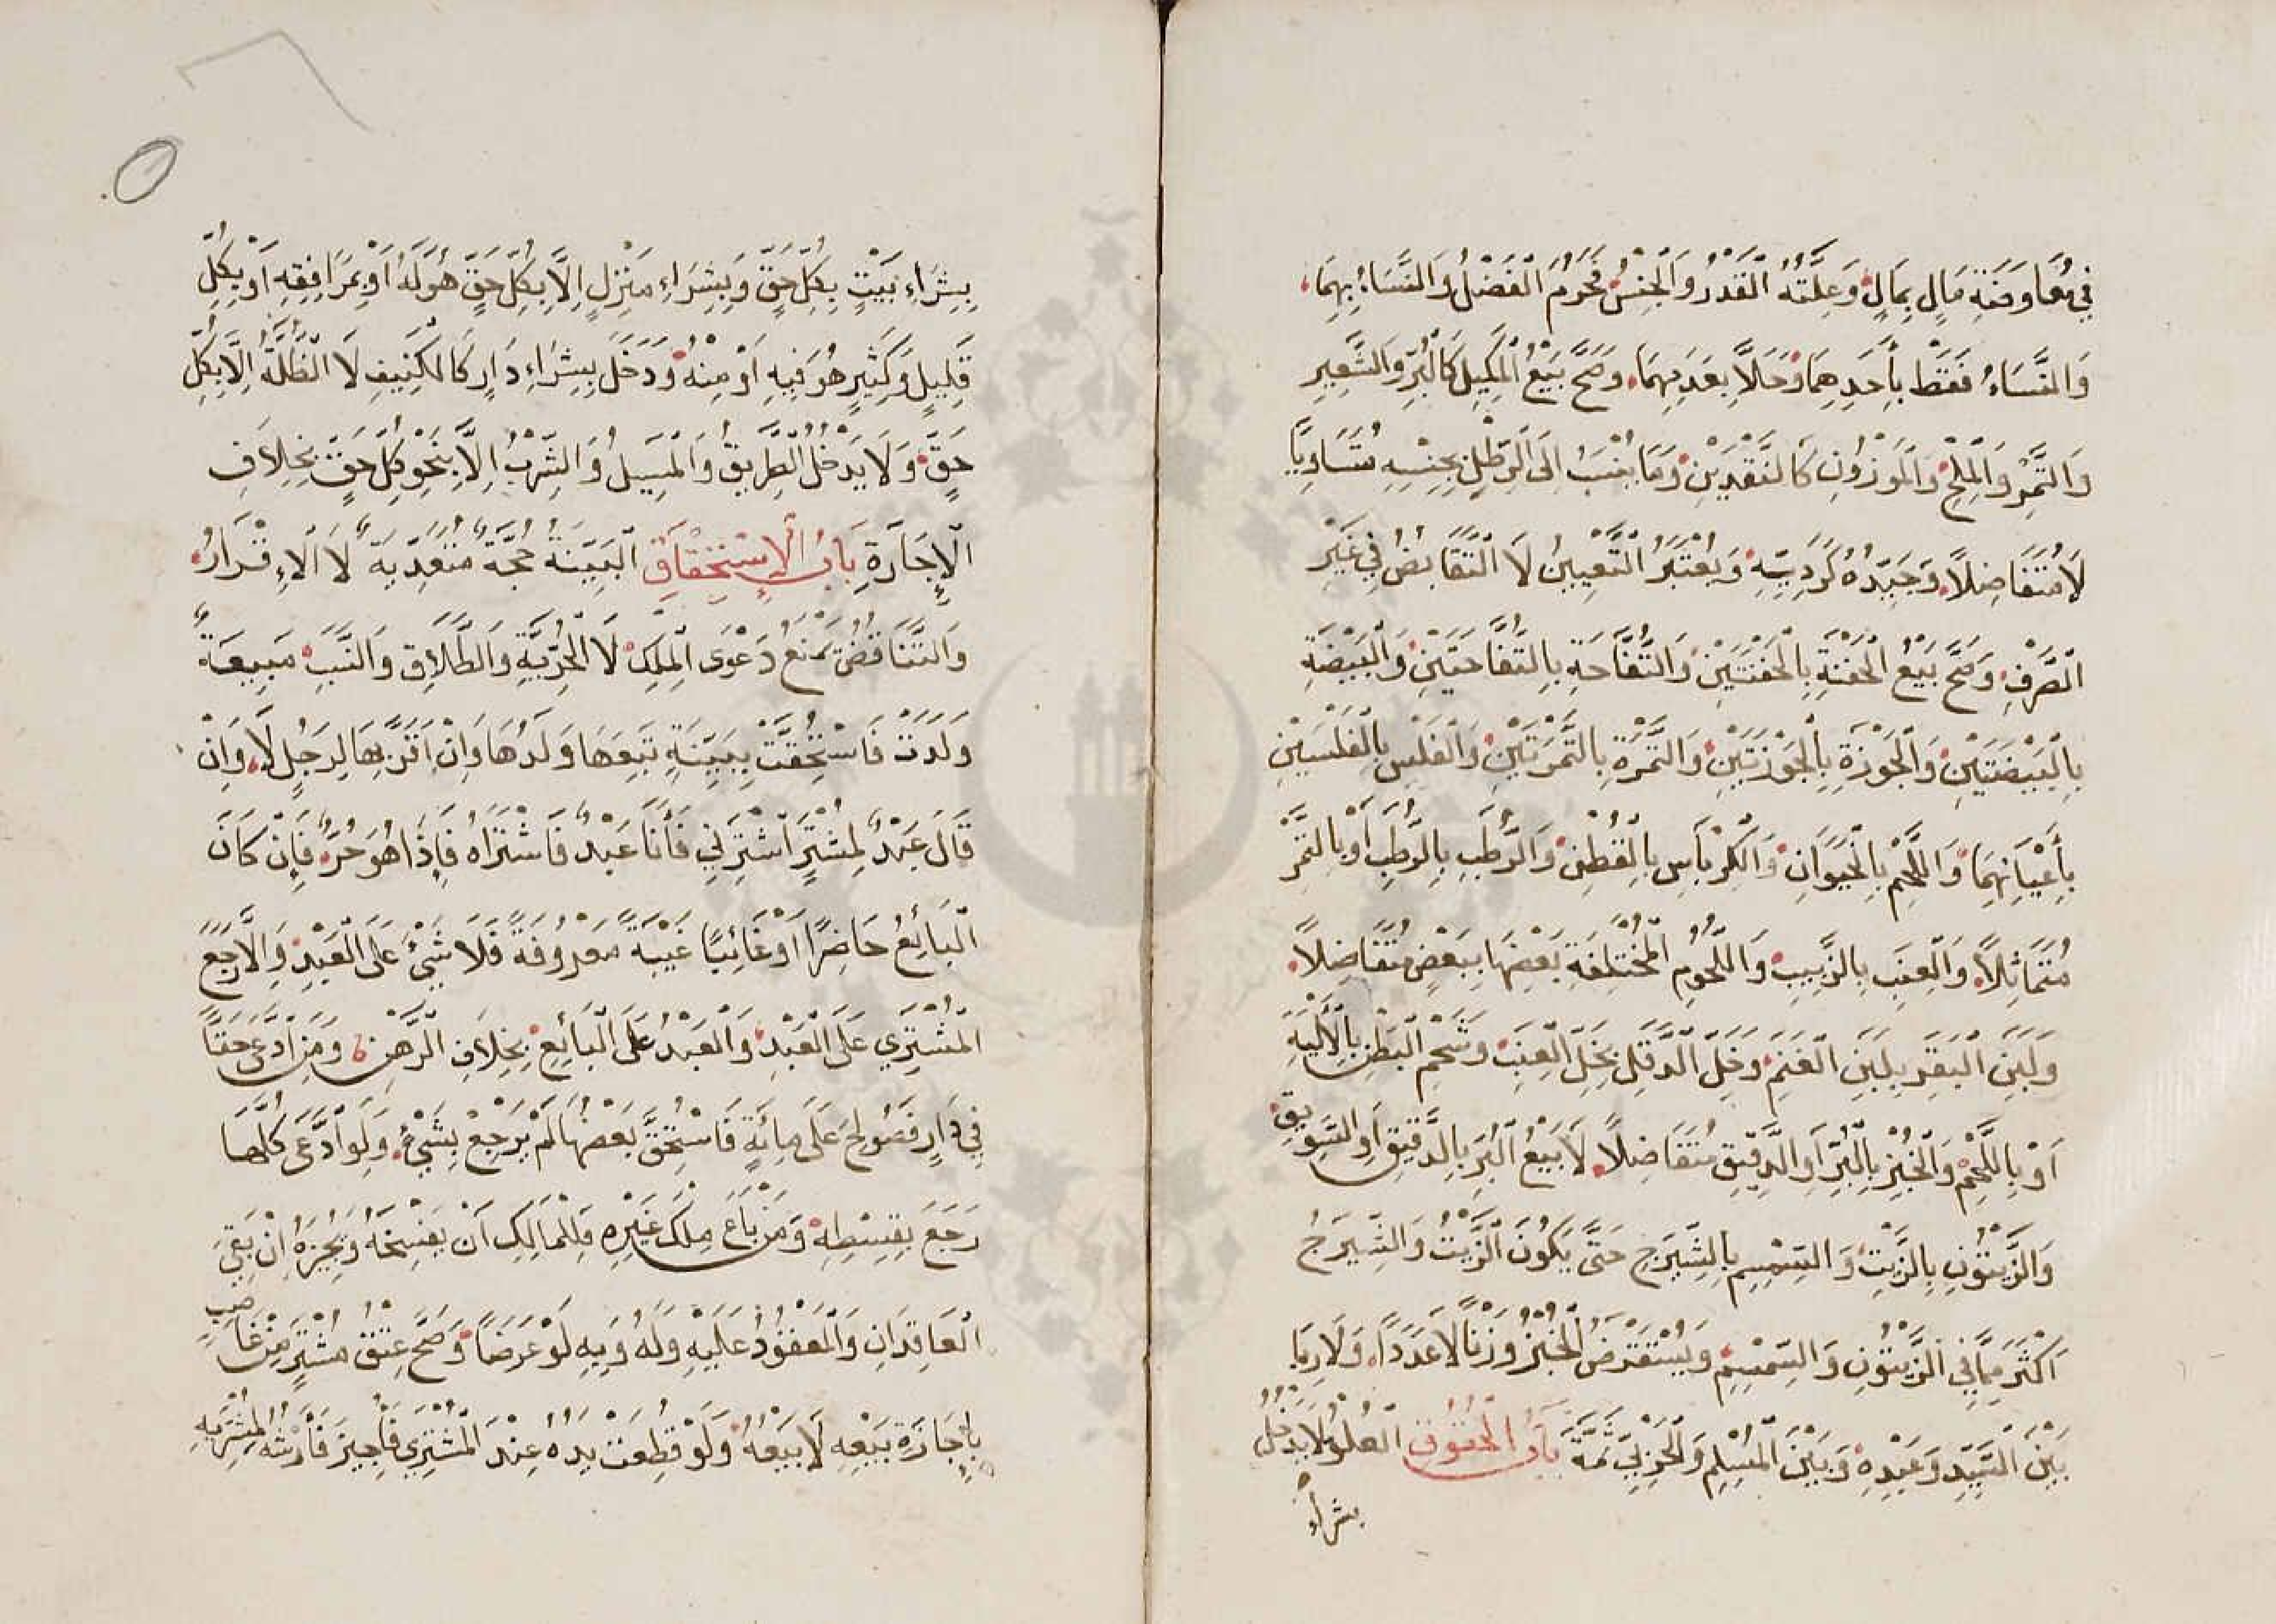 فِي مُعَاوَضَةِ مَالٍ بِمَالٍ وَعِلَّتُهُ الْقَدْرُ وَالْجِنْسُ فَحَرُمَ الْفَضْلُ وَالنَّسَاءُ بِهِمَا
وَالنَّسَاءُ فَقَطْ بِأَحَدِهِمَا وَحَلَّا بِعَدَمِهِمَا وَصَحَّ بَيْعُ الْمَكِيلِ كَالْبُرِّ وَالشَّعِيرِ
وَالتَّمْرِ وَالْمِلْحِ وَالْمَوْزُونِ كَالنَّقْدَيْنِ وَمَا يُنْسَبُ اِلَى الرَّطْلِ بِجِنْسِهِ مُتَسَاوِيًا
لَا مُتَفَاضِلًا وَجَيِّدُهُ كَرَدِيِّهِ وَيُعْتَبَرُ التَّعْيِينُ لَا التَّقَابُضُ فِي غَيْرِ
الصَّرْفِ وَصَحَّ بَيْعُ الْحَفْنَةِ بِالْحَفْنَتَيْنِ وَالتُّفَّاحَةِ بِالتُّفَّاحَتَيْنِ وَالْبَيْضَةِ
بِالْبَيْضَتَيْنِ وَالْجَوْزَةِ بِالْجَوْزَتَيْنِ وَالتَّمْرَةِ بِالتَّمْرَتَيْنِ وَالْفَلْسِ بِالْفَلْسَيْنِ
بِأَعْيَانِهِمَا وَاللَّحْمِ بِالْحَيَوَانِ وَالْكِرْبَاسِ بِالْقُطْنِ وَالرُّطَبِ بِالرُّطَبِ اَوْ بِالتَّمْرِ
مُتَمَاثِلًا وَالْعِنَبِ بِالزَّبِيبِ وَاللُّحُومِ الْمُخْتَلِفَةِ بَعْضِهَا بِبَعْضٍ مُتَفَاضِلًا
وَلَبَنِ الْبَقَرِ بِلَبَنِ الْغَنَمِ وَخَلِّ الدَّقَلِ بِخَلِّ الْعِنَبِ وَشَحْمِ الْبَطْنِ بِالْأَلْيَةِ
اَوْ بِاللَّحْمِ وَالْخُبْزِ بِالْبُرِّ اَوِ الدَّقِيقِ مُتَفَاضِلًا لَا بَيْعُ الْبُرِّ بِالدَّقِيقِ اَوِ السَّوِيقِ
وَالزَّيْتُونِ بِالزَّيْتِ وَالسِّمْسِمِ بِالشَّيْرَجِ حَتَّى يَكُونَ الزَّيْتُ وَالشَّيْرَجُ
اَكْثَرَ مِمَّا فِي الزَّيْتُونِ وَالسِّمْسِمِ وَيُسْتَقْرَضُ الْخُبْزُ وَزْنًا لَا عَدَدًا وَلَا رِبَا
بَيْنَ السَّيِّدِ وَعَبْدِهِ وَبَيْنَ الْمُسْلِمِ وَالْحَرْبِيِّ ثَمَّةَ بَابُ الْحُقُوقِ الْعُلْوُ لَا يَدْخُلُ
بشراء
بِشِرَاءِ بَيْتٍ بِكُلِّ حَقٍّ وَبِشِرَاءِ مَنْزِلٍ اِلَّا بِكُلِّ حَقٍّ هُوَ لَهُ اَوْ بِمَرَافِقِهِ اَوْ بِكُلِّ
قَلِيلٍ وَكَثِيرٍ هُوَ فِيهِ اَوْ مِنْهُ وَدَخَلَ بِشِرَاءِ دَارٍ كَالْكَنِيفِ لَا الظُّلَّةُ اِلَّا بِكُلِّ
حَقٍّ وَلَا يَدْخُلُ الطَّرِيقُ وَالْمَسِيلُ وَالشِّرْبُ اِلَّا بِنَحْوِ كُلِّ حَقٍّ بِخِلَافِ
الْإِجَارَةِ بَابُ الْإِسْتِحْقَاقِ الْبَيِّنَةُ حُجَّةٌ مُتَعَدِّيَةٌ لَا الْاِقْرَارُ
وَالتَّنَاقُضُ يَمْنَعُ دَعْوَى الْمِلْكِ لَا الْحُرِّيَّةِ وَالطَّلَاقِ وَالنَّسَبِ مَبِيعَةٌ
وَلَدَتْ فَاسْتُحِقَّتْ بِبَيِّنَةٍ تَبِعَهَا وَلَدُهَا وَاِنْ اَقَرَّ بِهَا لِرَجُلٍ لَا وَاِنْ
قَالَ عَبْدٌ لِمُشْتَرٍ اشْتَرِنِي فَأَنَا عَبْدٌ فَاشْتَرَاهُ فَإِذَا هُوَ حُرٌّ فَإِنْ كَانَ
الْبَائِعُ حَاضِرًا اَوْ غَائِبًا غَيْبَةً مَعْرُوفَةً فَلَا شَيْءَ عَلَى الْعَبْدِ وَاِلَّا رَجَعَ
الْمُشْتَرِي عَلَى الْعَبْدِ وَالْعَبْدُ عَلَى الْبَائِعِ بِخِلَافِ الرَّهْنِ وَمَنِ ادَّعَى حَقًّا
فِي دَارٍ فَصُولِحَ عَلَى مِائَةٍ فَاسْتُحِقَّ بَعْضُهَا لَمْ يَرْجِعْ بِشَيْءٍ وَلَوِ ادَّعَى كُلَّهَا
رَجَعَ بِقِسْطِهِ وَمَنْ بَاعَ مِلْكَ غَيْرِهِ فَلِلْمَالِكِ اَنْ يَفْسَخَهُ وَيُجِيزَهُ اِنْ بَقِيَ
الْعَاقِدَانِ وَالْمَعْقُودُ عَلَيْهِ وَلَهُ وَبِهِ لَوْ عَرَضًا وَصَحَّ عِتْقُ مُشْتَرٍ مِنْ غَاصِبٍ
بِإِجَازَةِ بَيْعِهِ لَا بَيْعُهُ وَلَوْ قُطِعَتْ يَدُهُ عِنْدَ الْمُشْتَرِي فَأُجِيزَ فَأَرْشُهُ لِمُشْتَرِيهِ